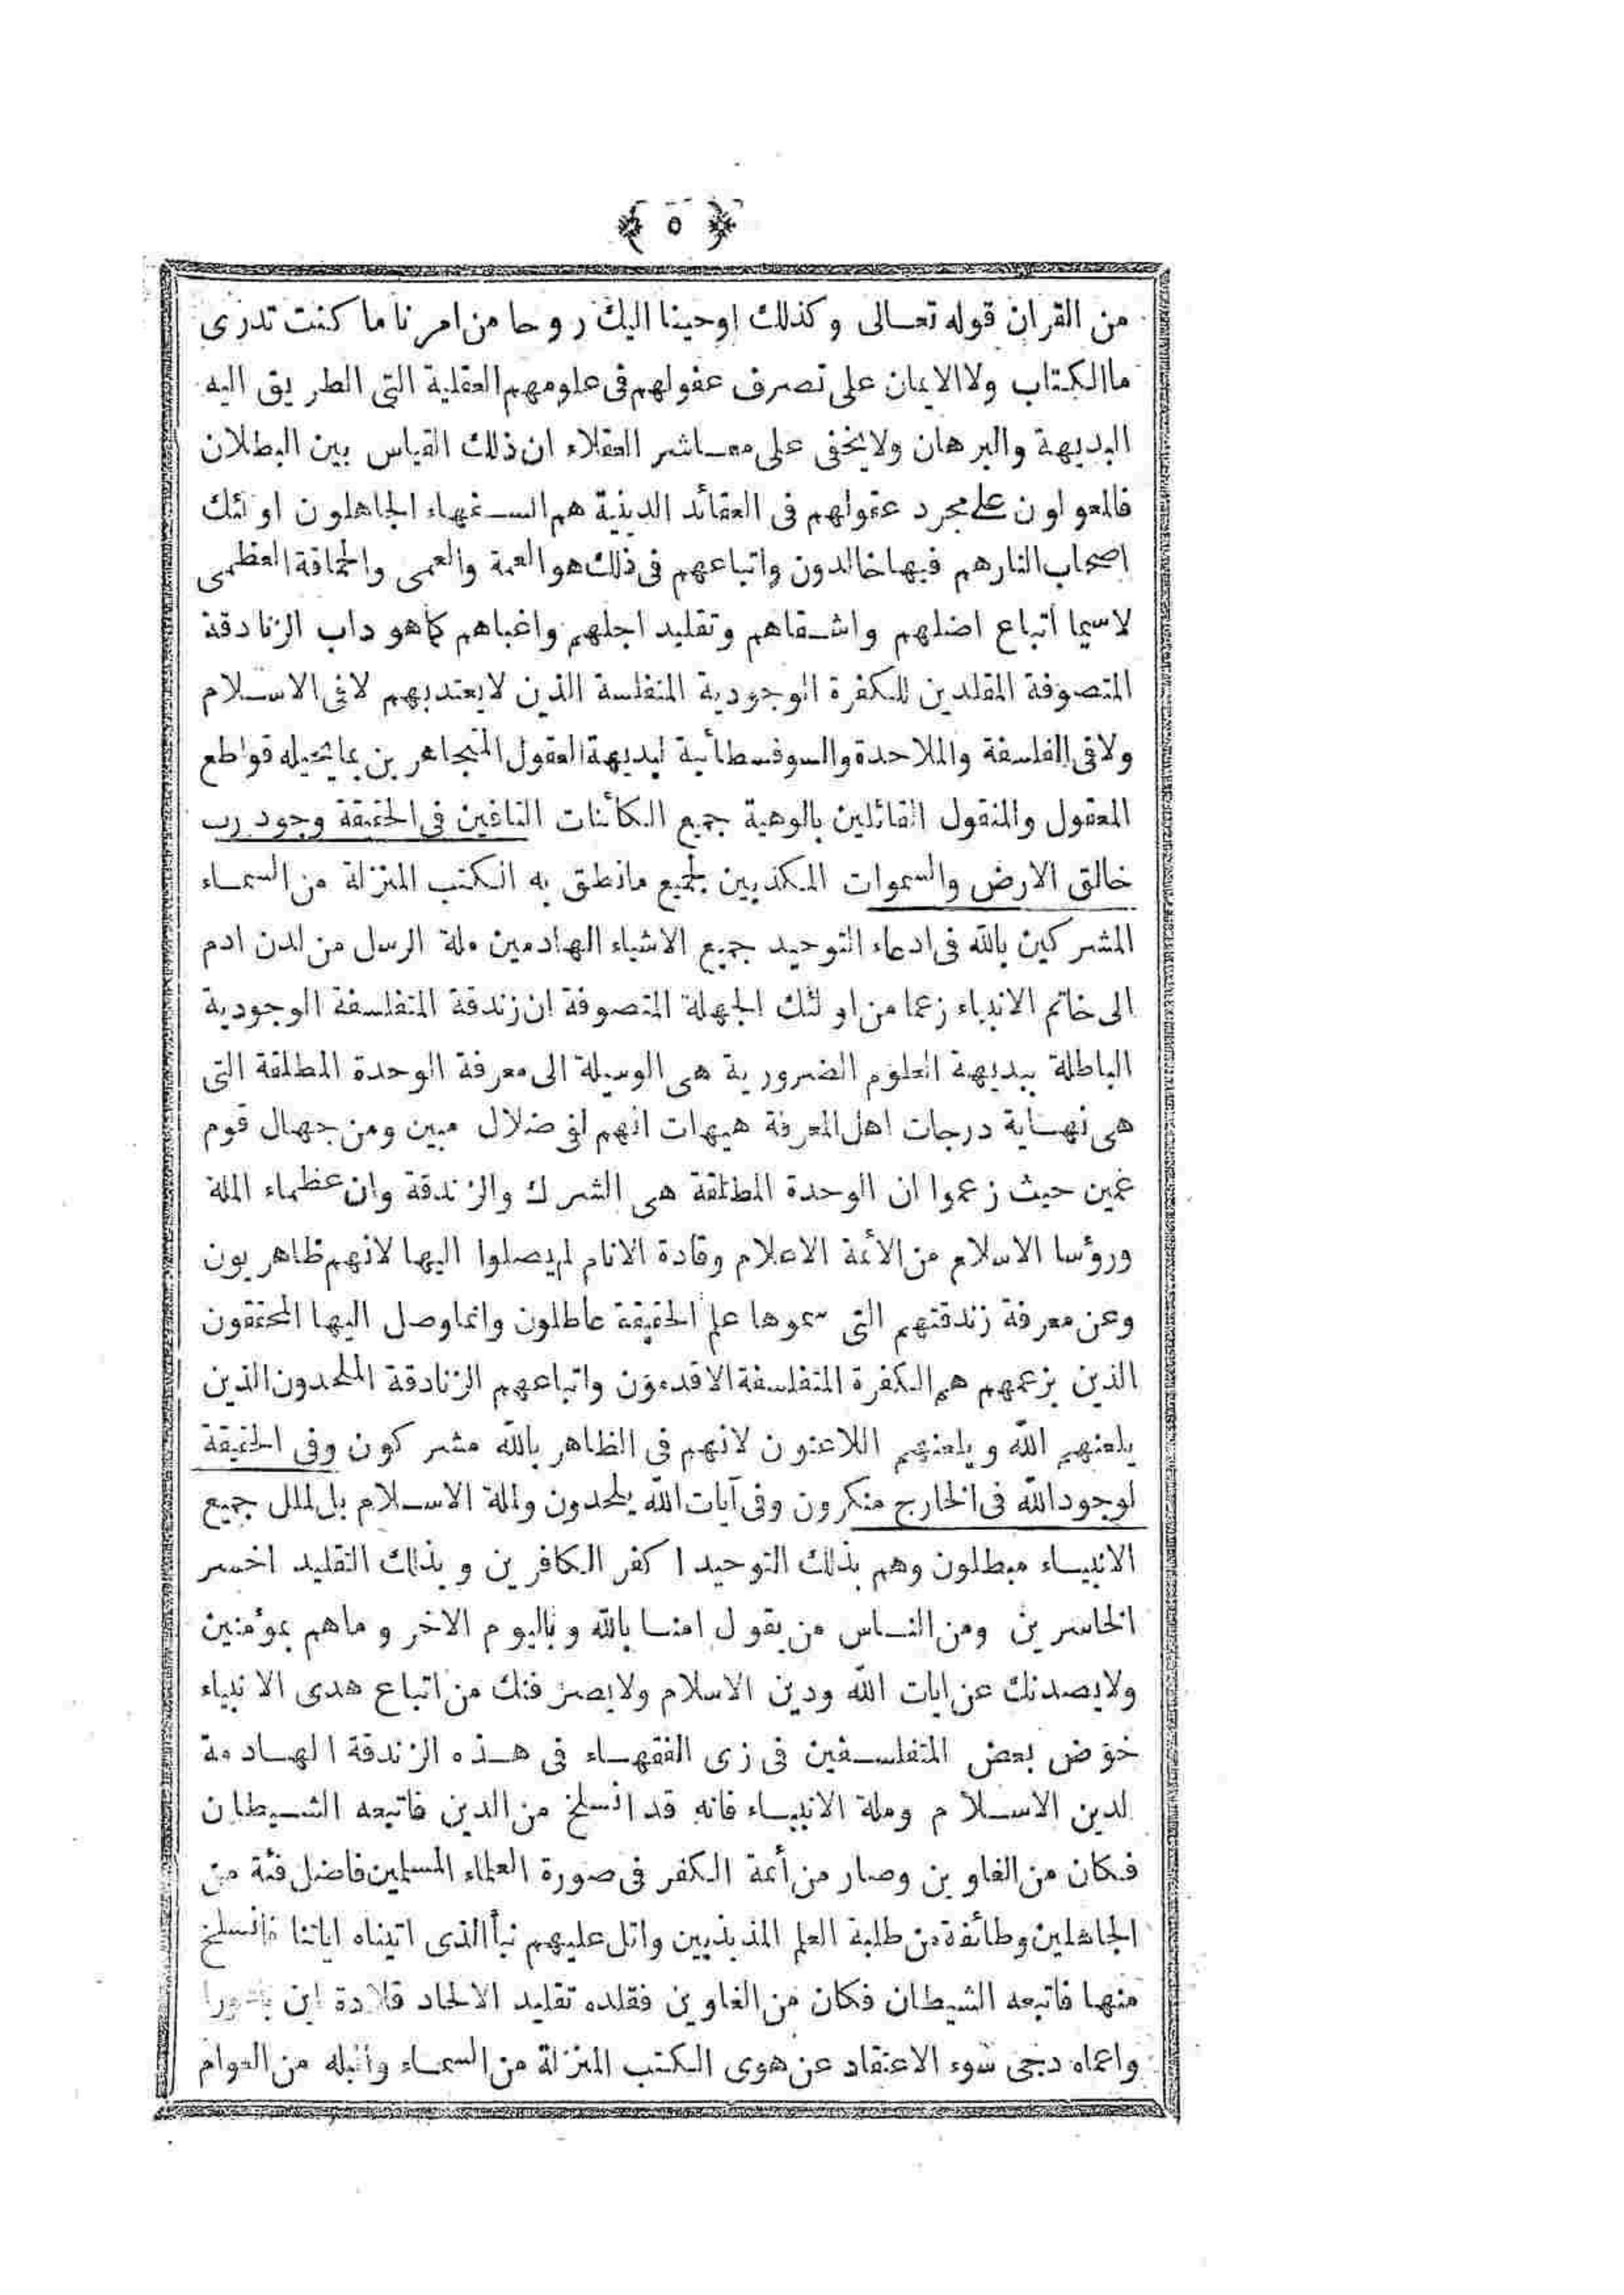 ﴿ ٥ ﴾
من القران قوله تعـالى وكذلك اوحينا اليك روحا من امرنا ما كنت تدرى
ما الكتاب ولا الايمان على تصرف عقولهم فى علومهم العقلية التى الطريق اليه
البديهة والبرهان ولا يخفى على معـاشر العقلاء ان ذلك القياس بين البطلان
فالمعولون على مجرد عقولهم فى العقائد الدينية هم السـفهاء الجاهلون اولئك
اصحاب النار هم فيها خالدون واتباعهم فى ذلك هو العمة والعمى والحماقة العظمى
لاسيما اتباع اضلهم واشـقاهم وتقليد اجلهم واغباهم كما هو داب الزنادقة
المتصوفة المقلدين للكفرة الوجودية المتفلسة الذين لا يعتد بهم لا فى الاسـلام
ولا فى الفلسفة والملاحدة والسوفسطائية لبديهة العقول المتجاهرين بما يحيله قواطع
المعقول والمنقول القائلين بالوهية جميع الكائنات النافين فى الحقيقة وجود رب
خالق الارض والسموات المكذبين لجميع ما نطق به الكتب المنزلة من السمـاء
المشركين بالله فى ادعاء التوحيد جميع الاشياء الهادمين ملة الرسل من لدن ادم
الى خاتم الانبياء زعما من اولئك الجهلة المتصوفة ان زندقة المتفلسفة الوجودية
الباطلة ببديهة العلوم الضرورية هى الوسيلة الى معرفة الوحدة المطلقة التى
هى نهـاية درجات اهل المعرفة هيهات انهم لفى ضلال مبين ومن جهال قوم
عمين حيث زعموا ان الوحدة المطلقة هى الشرك والزندقة وان عظماء الملة
ورؤسا الاسلام من الأئمة الاعلام وقادة الانام لم يصلوا اليها لانهم ظاهريون
وعن معرفة زندقتهم التى سموها علم الحقيقة عاطلون وانما وصل اليها المحققون
الذين بزعمهم هم الكفرة المتفلسفة الاقدمون واتباعهم الزنادقة الملحدون الذين
يلعنهم الله ويلعنهم اللاعنون لانهم فى الظاهر بالله مشركون وفى الحقيقة
لوجود الله فى الخارج منكرون وفى آيات الله يلحدون ولملة الاسـلام بل لملل جميع
الانبيـاء مبطلون وهم بذلك التوحيد اكفر الكافرين وبذلك التقليد اخسر
الخاسرين ومن النـاس من يقول امنـا بالله وباليوم الاخر وما هم بمؤمنين
ولا يصدنك عن ايات الله ودين الاسلام ولا يصرفنك من اتباع هدى الانبياء
خوض بعض المتفلسـفين فى زى الفقهـاء فى هـذه الزندقة الهـادمة
لدين الاسـلام وملة الانبيـاء فانه قد انسلخ من الدين فاتبعه الشـيطان
فكان من الغاوين وصار من أئمة الكفر فى صورة العلماء المسلمين فاضل فئة من
الجاهلين وطائفة من طلبة العلم المذبذبين واتل عليهم نبأ الذى اتيناه اياتنا فانسلخ
منها فاتبعه الشيطان فكان من الغاوين فقلده تقليد الالحاد قلادة ابن باعورا
واعماه دجى سوء الاعتقاد عن هوى الكتب المنزلة من السمـاء وانبله من العوام